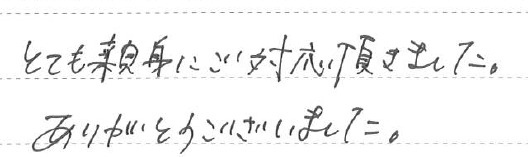 とても親身にご対応頂きました。
ありがとうございました。